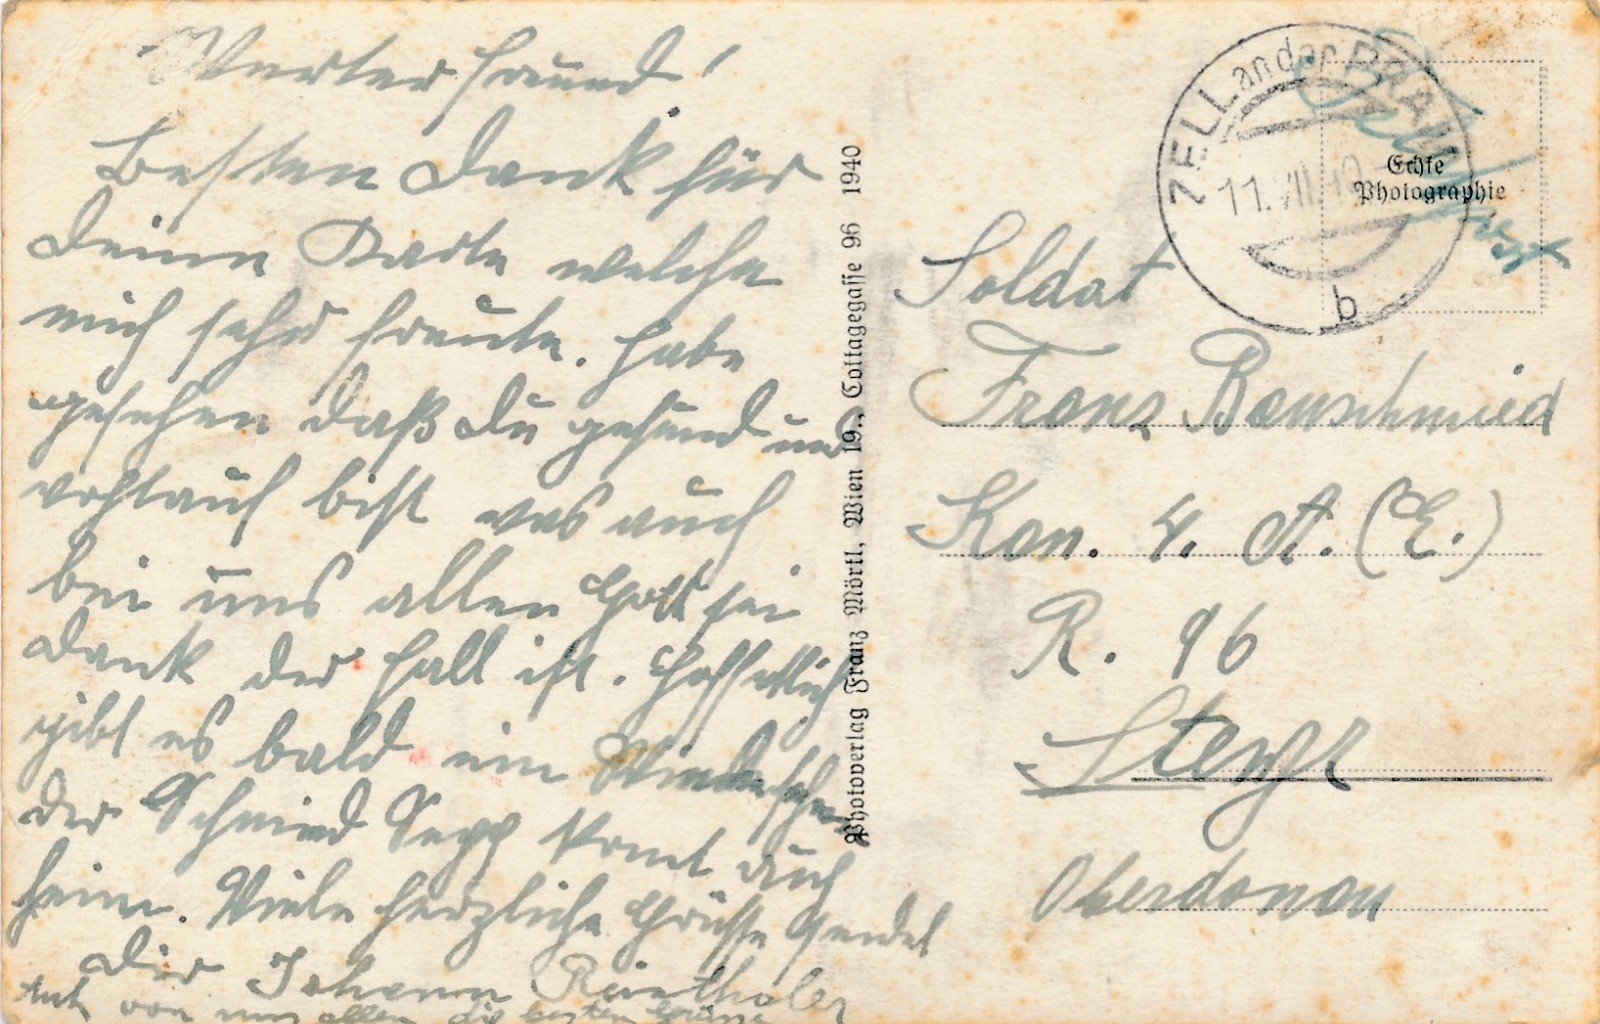 Werter Freund!
Besten Dank für
Deine Karte welche
mich sehr freute. Habe
gesehen daß Du gesund und
wohlauf bist was auch
bei uns allen Gott sei
Dank der Fall ist. Hoffentlich
gibt es bald ein Wiedersehen
der Schmied Sepp komt auch
heim. Viele herzliche Grüsse sendet
Dir Johann Reinthaler
Auch von uns allen die besten Grüsse
Photoverlag Franz Mörtl, Wien 19., Cottagegasse 96 1940
ZELL an der PRAM
11.VII.40
b
Feldpost
Echte
Photographie
Soldat
Franz Bauschmied
Kan. 4. A. (E.)
R. 96
Steyr
Oberdonau